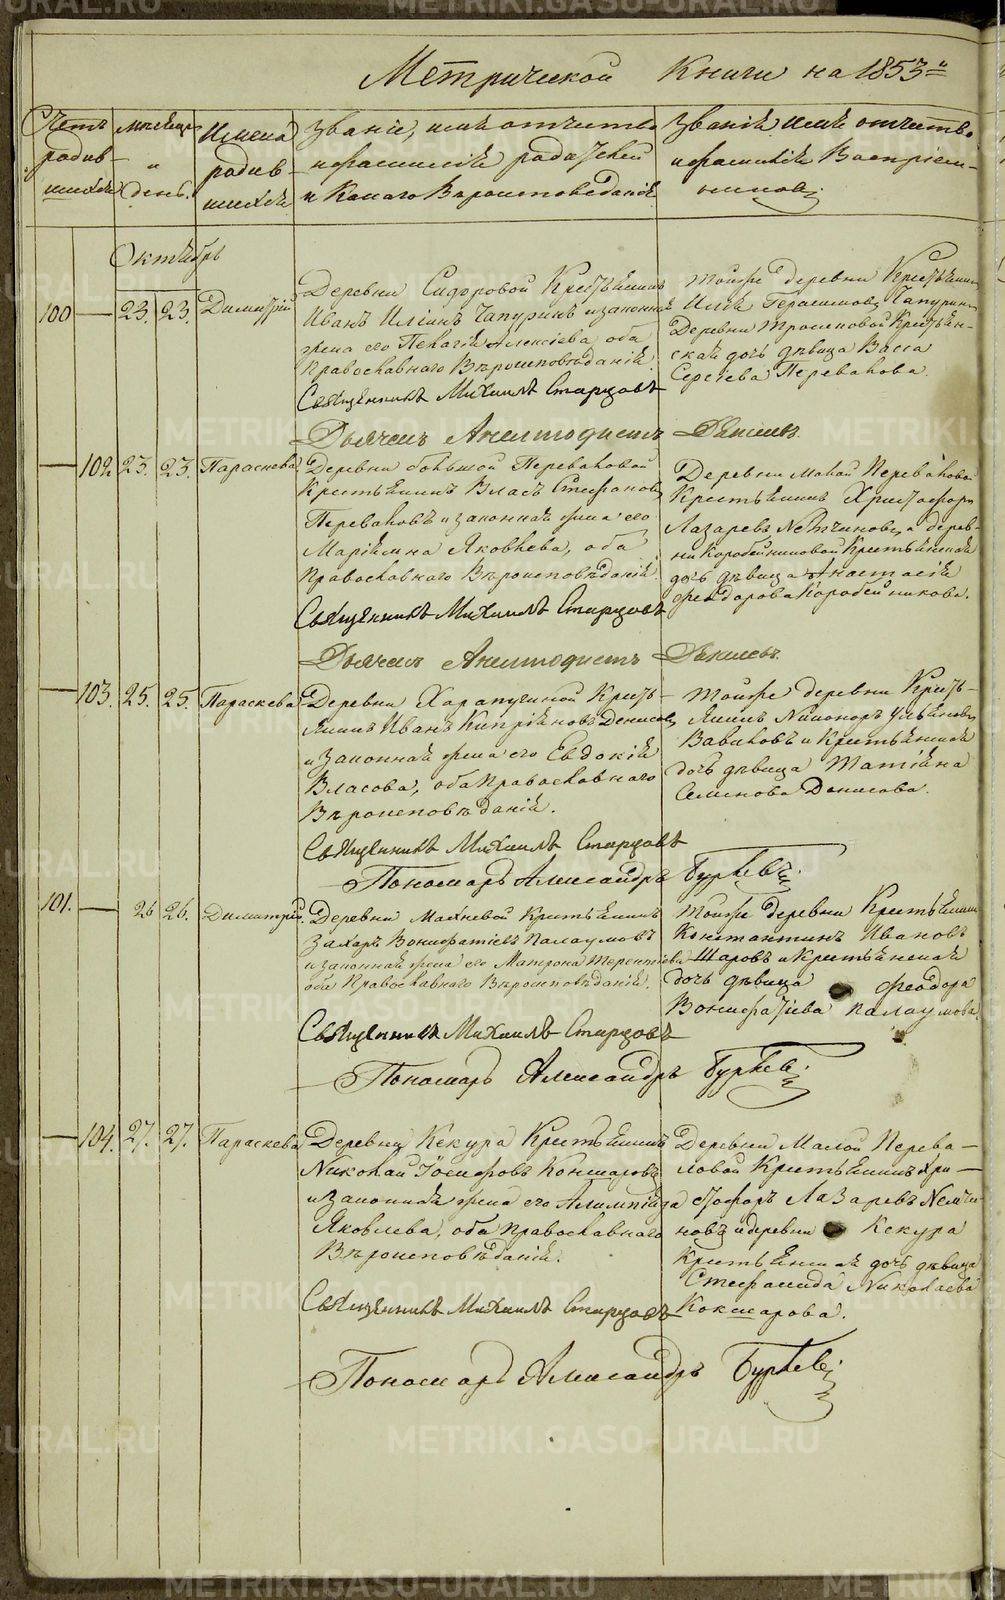 Метрической Книги на 1853 й
Счетъ родив- шихся
мѣсяцъ и день.
Имена родив- шихся
Званіе, имя отчество и фамилія родителей и Какаго Вѣроисповѣданія
Званіе имя отчество и фамилія Воспріем- никовъ.
Октябрь
100 — 23. 23. Димитрій
Деревни Сидоровой Крестьянинъ
Иванъ Ильинъ Чапуринъ и законная
жена его Пелагія Алексіева, оба
Православнаго Вѣроисповѣданія.
Тойже деревни Крестьянинъ
Илья Герасимовъ Чапуринъ
Деревни Крестьян-
ская дочь дѣвица Васса
Сергіева Перевалова.
Священникъ Михаилъ Старцовъ
Дьячекъ Анемподистъ
— 102 23. 23. Параскева.
Деревни большой Переваловой
Крестьянинъ Власъ Стефановъ
Переваловъ и законная жена его
Маріямна Яковлева, оба
Православнаго Вѣроисповѣданія.
Деревни Малой Переваловой
Крестьянинъ Христофоръ
Лазаревъ Немчиновъ, а дерев-
ни Коробейниковой Крестьянская
дочь дѣвица Анастасія
Феодорова Коробейникова.
Священникъ Михаилъ Старцовъ
Дьячекъ Анемподистъ
— 103. 25. 25. Параскева
Деревни Харапугиной Кресть-
янинъ Иванъ Кипріяновъ Денисовъ
и Законная жена его Евдокія
Власова, оба Православнаго
Вѣроисповѣданія.
Тойже деревни Кресть-
янинъ Никоноръ Ульяновъ
Вавиловъ и Крестьянская
дочь дѣвица Татіяна
Семенова Денисова.
Священникъ Михаилъ Старцовъ
Пономарь Александръ
101. — 26 26. Димитрій.
Деревни Махневой Крестьянинъ
Захаръ Вонифатіевъ Палаумовъ
и законная жена его Матрона Терентіева
оба Православнаго Вѣроисповѣданія.
Тойже Деревни Крестьянинъ
Константинъ Ивановъ
Шаровъ и Крестьянская
дочь дѣвица Феодора
Вонифатіева Палаумова.
Священникъ Михаилъ Старцовъ
Пономарь Александръ
— 104. 27. 27. Параскева
Деревни Кекура Крестьянинъ
Николай Іосифовъ Кокшаровъ
и Законная жена его Алимпіяда
Яковлева, оба Православнаго
Вѣроисповѣданія.
Деревни Малой Перева-
ловой Крестьянинъ Хри-
стофоръ Лазаревъ Немчи-
новъ и деревни Кекура
Крестьянская дочь дѣвица
Стефанида Николаева
Кокшарова.
Священникъ Михаилъ Старцовъ
Пономарь Александръ
METRIKI.GASO-URAL.RU